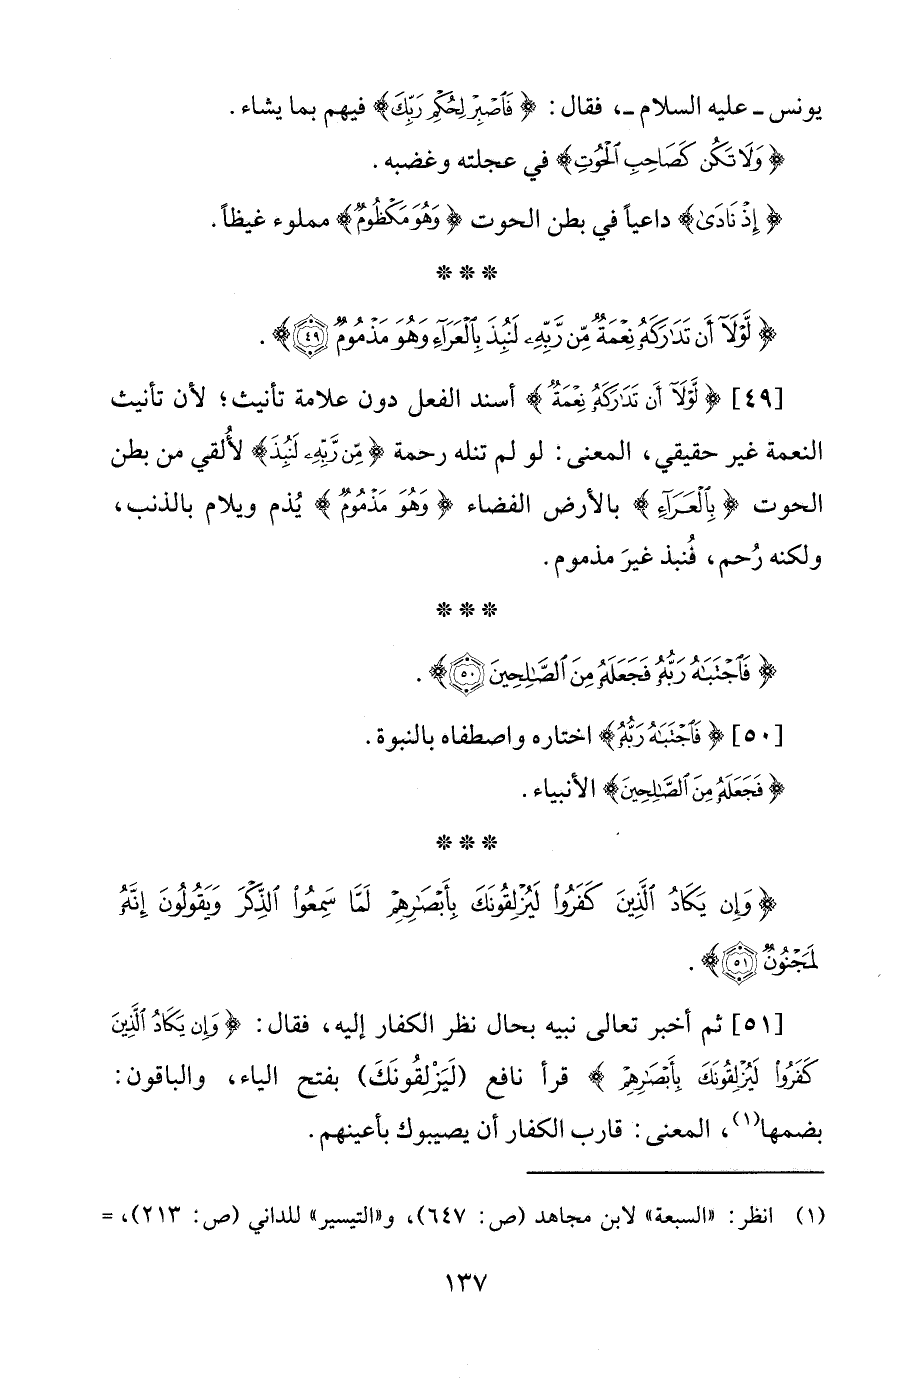 يونس ـ عليه السلام ـ، فقال: ﴿فَاصْبِرْ لِحُكْمِ رَبِّكَ﴾ فيهم بما يشاء.
﴿وَلَا تَكُنْ كَصَاحِبِ الْحُوتِ﴾ في عجلته وغضبه.
﴿إِذْ نَادَىٰ﴾ داعياً في بطن الحوت ﴿وَهُوَ مَكْظُومٌ﴾ مملوء غيظاً.
* * *
﴿لَّوْلَآ أَن تَدَٰرَكَهُۥ نِعْمَةٌ مِّن رَّبِّهِۦ لَنُبِذَ بِٱلْعَرَآءِ وَهُوَ مَذْمُومٌ ٤٩﴾.
[٤٩] ﴿لَّوْلَآ أَن تَدَٰرَكَهُۥ نِعْمَةٌ﴾ أسند الفعل دون علامة تأنيث؛ لأن تأنيث
النعمة غير حقيقي، المعنى: لو لم تنله رحمة ﴿مِّن رَّبِّهِۦ لَنُبِذَ﴾ لأُلقي من بطن
الحوت ﴿بِٱلْعَرَآءِ﴾ بالأرض الفضاء ﴿وَهُوَ مَذْمُومٌ﴾ يُذم ويلام بالذنب،
ولكنه رُحم، فُنبذ غيرَ مذموم.
* * *
﴿فَٱجْتَبَٰهُ رَبُّهُۥ فَجَعَلَهُۥ مِنَ ٱلصَّٰلِحِينَ ٥٠﴾.
[٥٠] ﴿فَٱجْتَبَٰهُ رَبُّهُۥ﴾ اختاره واصطفاه بالنبوة.
﴿فَجَعَلَهُۥ مِنَ ٱلصَّٰلِحِينَ﴾ الأنبياء.
* * *
﴿وَإِن يَكَادُ ٱلَّذِينَ كَفَرُوا۟ لَيُزْلِقُونَكَ بِأَبْصَٰرِهِمْ لَمَّا سَمِعُوا۟ ٱلذِّكْرَ وَيَقُولُونَ إِنَّهُۥ
لَمَجْنُونٌ ٥١﴾.
[٥١] ثم أخبر تعالى نبيه بحال نظر الكفار إليه، فقال: ﴿وَإِن يَكَادُ ٱلَّذِينَ
كَفَرُوا۟ لَيُزْلِقُونَكَ بِأَبْصَٰرِهِمْ﴾ قرأ نافع (لَيَزْلِقُونَكَ) بفتح الياء، والباقون:
بضمها(١)، المعنى: قارب الكفار أن يصيبوك بأعينهم.
(١) انظر: «السبعة» لابن مجاهد (ص: ٦٤٧)، و«التيسير» للداني (ص: ٢١٣)، =
١٣٧